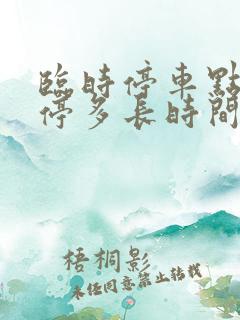 臨時停車點
停多長時間
梧桐影
未經同意禁止轉載